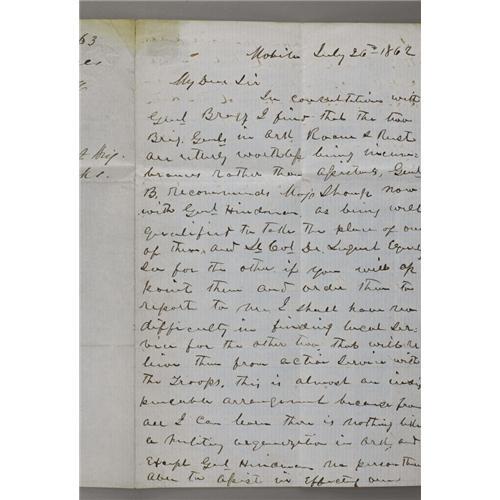 63
Mobile July 26th 1862
My Dear Sir
In consultation with
Genl Bragg I find that the two
Brig. Genls in Ark Roane & Rust
are utterly worthless being incum-
brances rather than assistants, Genl
B. recommends Majr Shoup now
with Genl Hindman as being well
qualified to take the place of one
of them, and Lt Col De Lagnel equal
so for the other, if you will ap
point them and order them to
report to me I shall have no
difficulty in finding local Ser-
vice for the other two, that will re
lieve them from active Service with
the Troops, this is almost an indis
pensable arrangement because from
all I can learn there is nothing like
a military organization in Ark, and
Except Genl Hindman no person there
able to assist in effecting one